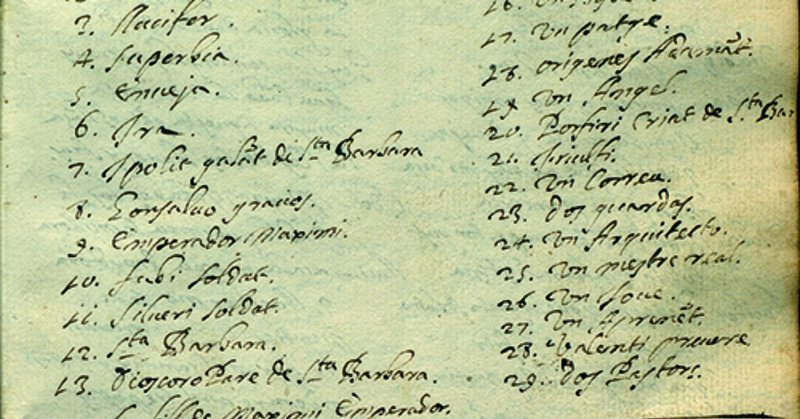 3. Llucifer.
4. Superbia.
5. Enveja.
6. Ira.
7. Ipolit galāt de Sta Barbara
8. Gonsalvo gracios.
9. Emperador Maximi.
10. Fabi soldat.
11. Silveri soldat.
12. Sta Barbara.
13. Dioscoro Pare de Sta Barbara.
de Maximi Emperador.
17. Un patge.
18. Origenes
19. Un Angel.
20. Porfiri Criat de Sta Bar
21.
22. Un Correu.
23. dos guardas.
24. Un Arquitecto.
25. Un mestre real.
26. Un Jove.
27. Un Aprenēt.
28. Valenti
29. dos Pastors.